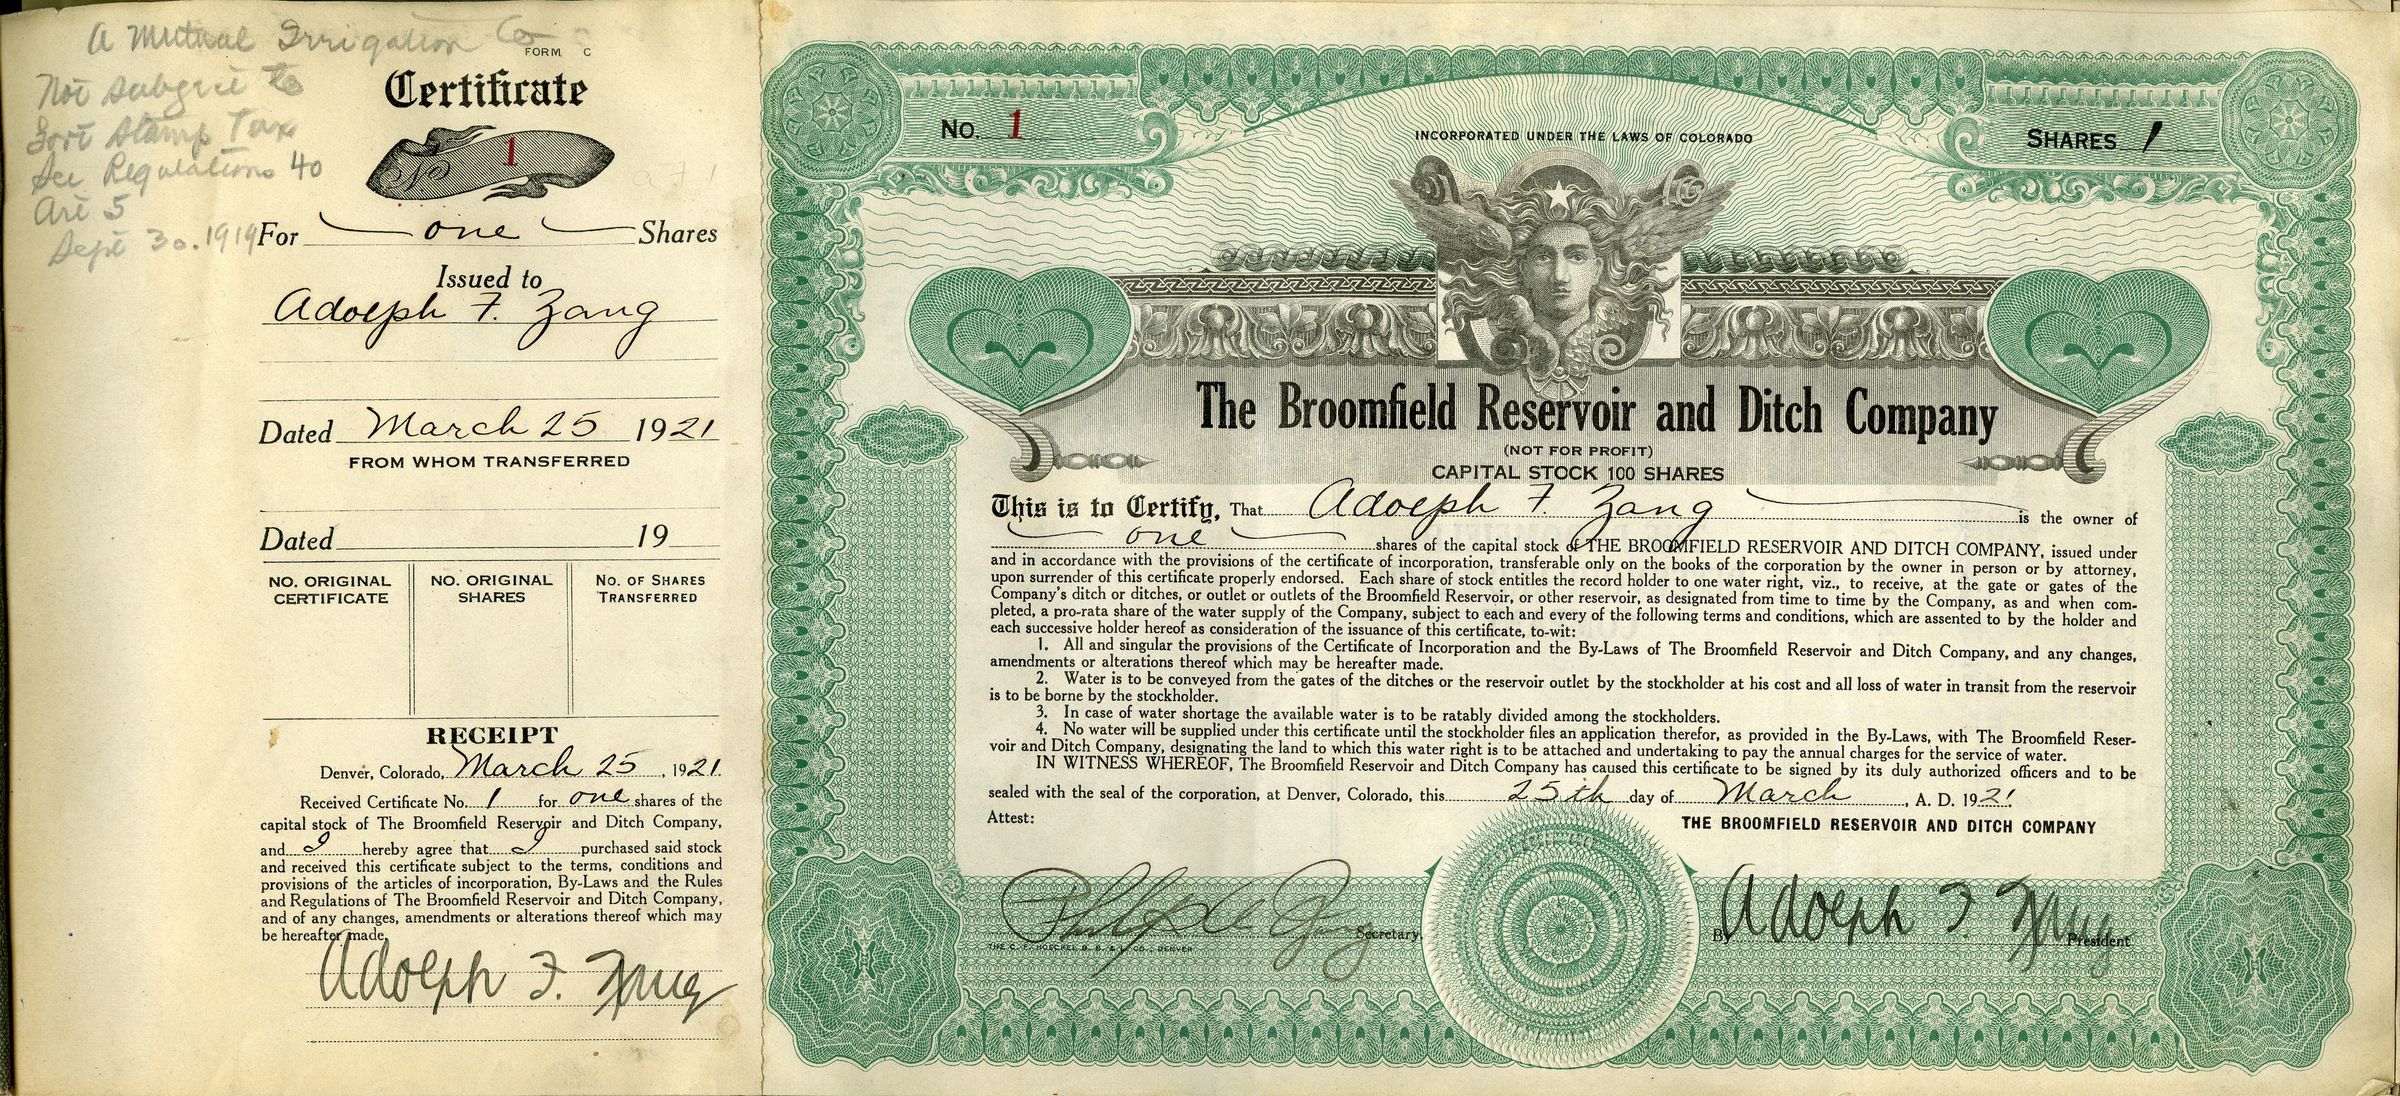 A Mutual Irrigation Co
FORM C
Not Subgect to
Govt Stamp Tax
See Regulations 40
Art 5
Sept 30. 1919
Certificate
No 1
For one Shares
Issued to
Adolph F. Zang
Dated March 25 1921
FROM WHOM TRANSFERRED
Dated 19
NO. ORIGINAL CERTIFICATE
NO. ORIGINAL SHARES
NO. OF SHARES TRANSFERRED
RECEIPT
Denver, Colorado, March 25, 1921.
Received Certificate No. 1 for one shares of the
capital stock of The Broomfield Reservoir and Ditch Company,
and I hereby agree that I purchased said stock
and received this certificate subject to the terms, conditions and
provisions of the articles of incorporation, By-Laws and the Rules
and Regulations of The Broomfield Reservoir and Ditch Company,
and of any changes, amendments or alterations thereof which may
be hereafter made.
Adolph F. Zang
NO. 1
INCORPORATED UNDER THE LAWS OF COLORADO
SHARES 1
The Broomfield Reservoir and Ditch Company
(NOT FOR PROFIT)
CAPITAL STOCK 100 SHARES
This is to Certify, That Adolph F. Zang is the owner of
one shares of the capital stock of THE BROOMFIELD RESERVOIR AND DITCH COMPANY, issued under
and in accordance with the provisions of the certificate of incorporation, transferable only on the books of the corporation by the owner in person or by attorney,
upon surrender of this certificate properly endorsed. Each share of stock entitles the record holder to one water right, viz., to receive, at the gate or gates of the
Company's ditch or ditches, or outlet or outlets of the Broomfield Reservoir, or other reservoir, as designated from time to time by the Company, as and when com-
pleted, a pro-rata share of the water supply of the Company, subject to each and every of the following terms and conditions, which are assented to by the holder and
each successive holder hereof as consideration of the issuance of this certificate, to-wit:
1. All and singular the provisions of the Certificate of Incorporation and the By-Laws of The Broomfield Reservoir and Ditch Company, and any changes,
amendments or alterations thereof which may be hereafter made.
2. Water is to be conveyed from the gates of the ditches or the reservoir outlet by the stockholder at his cost and all loss of water in transit from the reservoir
is to be borne by the stockholder.
3. In case of water shortage the available water is to be ratably divided among the stockholders.
4. No water will be supplied under this certificate until the stockholder files an application therefor, as provided in the By-Laws, with The Broomfield Reser-
voir and Ditch Company, designating the land to which this water right is to be attached and undertaking to pay the annual charges for the service of water.
IN WITNESS WHEREOF, The Broomfield Reservoir and Ditch Company has caused this certificate to be signed by its duly authorized officers and to be
sealed with the seal of the corporation, at Denver, Colorado, this 25th day of March, A. D. 1921.
Attest:
THE BROOMFIELD RESERVOIR AND DITCH COMPANY
Philip A Zang Secretary
By Adolph F. Zang President
THE C. F. HOECKEL B. B. & L. CO., DENVER